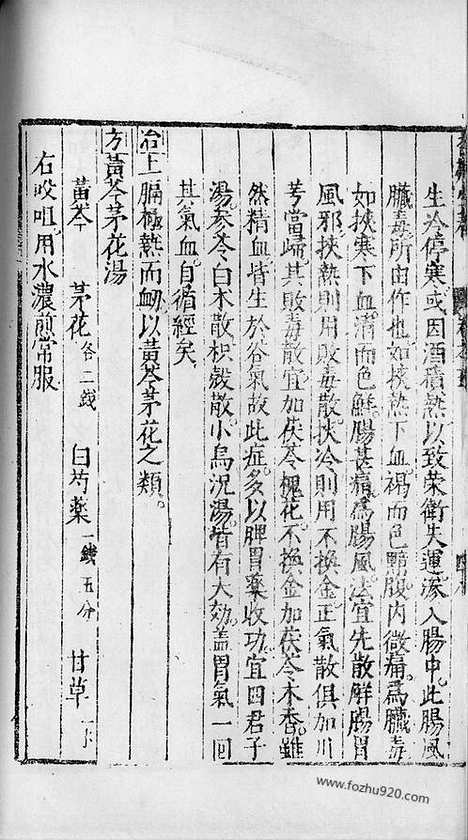 生冷停寒或因酒積熱以致荣衛失運滲入腸中此腸風
臟毒所由作也如挾熱下血褐而色黯腹内微痛爲臟毒
如挾寒下血清而色鮮腸甚痛爲腸風法宜先散鮮腸胃
風邪挾熱則用敗毒散挾冷則用不換金正氣散俱加川
芎當歸其敗毒散宜加茯苓槐花不换金加茯苓木香雖
然精血皆生於谷氣故此症多以脾胃藥收功宜四君子
湯参苓白术散枳殼散小烏沉湯皆有大効盖胃氣一回
其氣血自循經矣
治上膈極熱而衂以黄芩茅花之類
方黃芩茅花湯
黃芩 茅花各二錢 白芍藥一錢五分 甘草一卜
右㕮咀用水濃煎常服
www.fozhu920.com